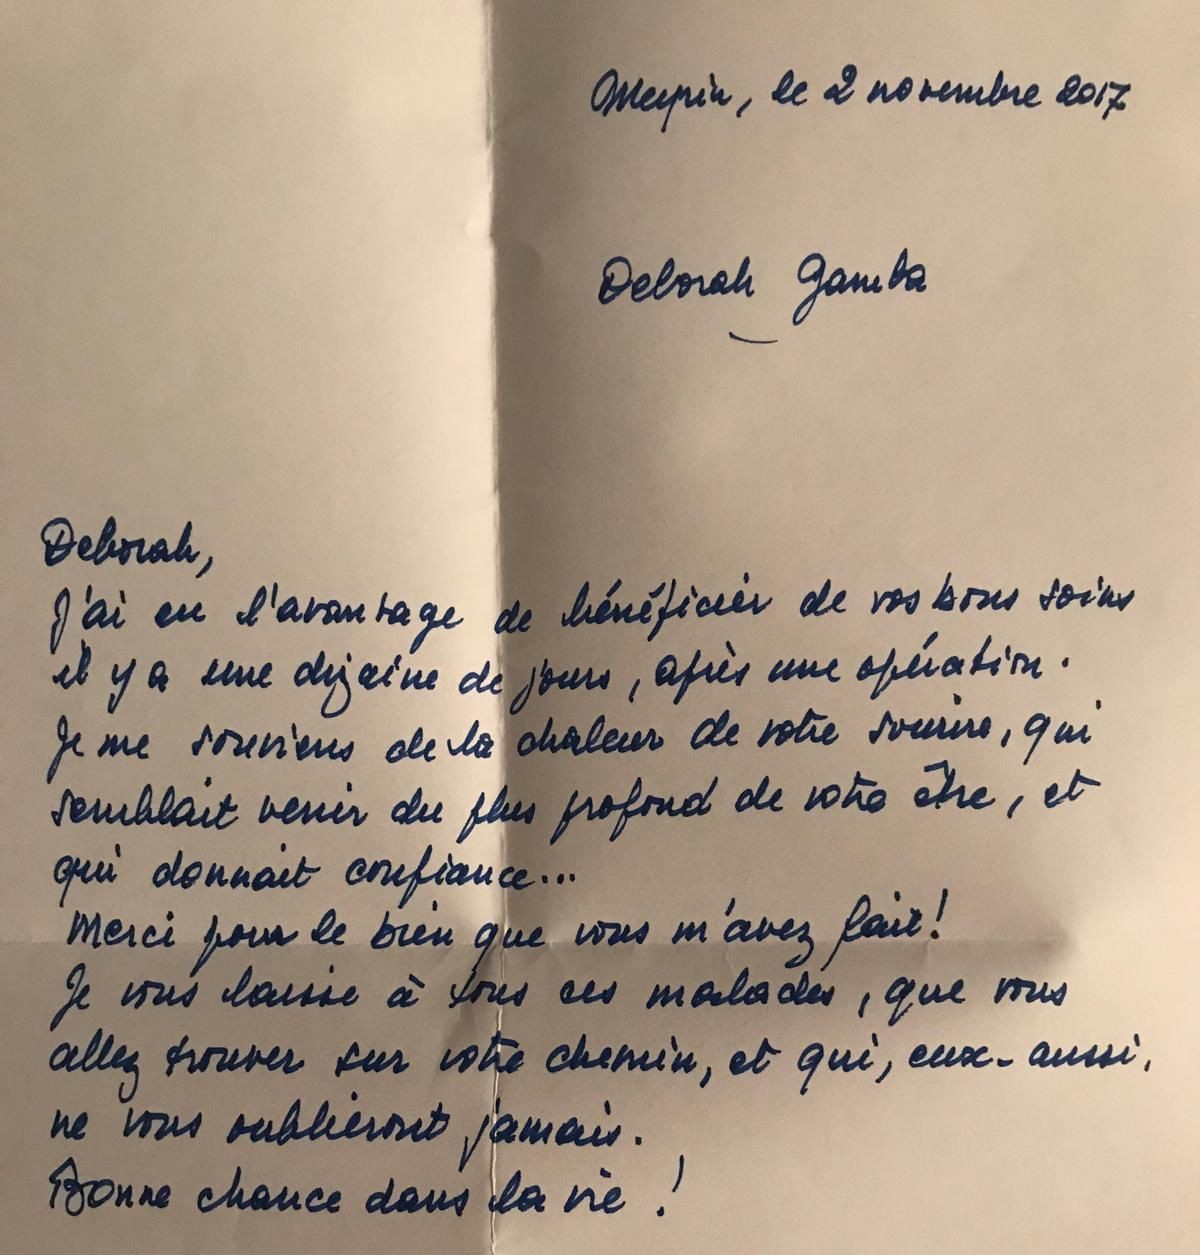 Meyrin, le 2 novembre 2017
Deborah Gamba
Deborah,
J'ai eu l'avantage de bénéficier de vos bons soins
il y a une dizaine de jours, après une opération.
Je me souviens de la chaleur de votre sourire, qui
semblait venir du plus profond de votre être, et
qui donnait confiance...
Merci pour le bien que vous m'avez fait!
Je vous laisse à tous ces malades, que vous
allez trouver sur votre chemin, et qui, eux-aussi,
ne vous oublieront jamais.
Bonne chance dans la vie !